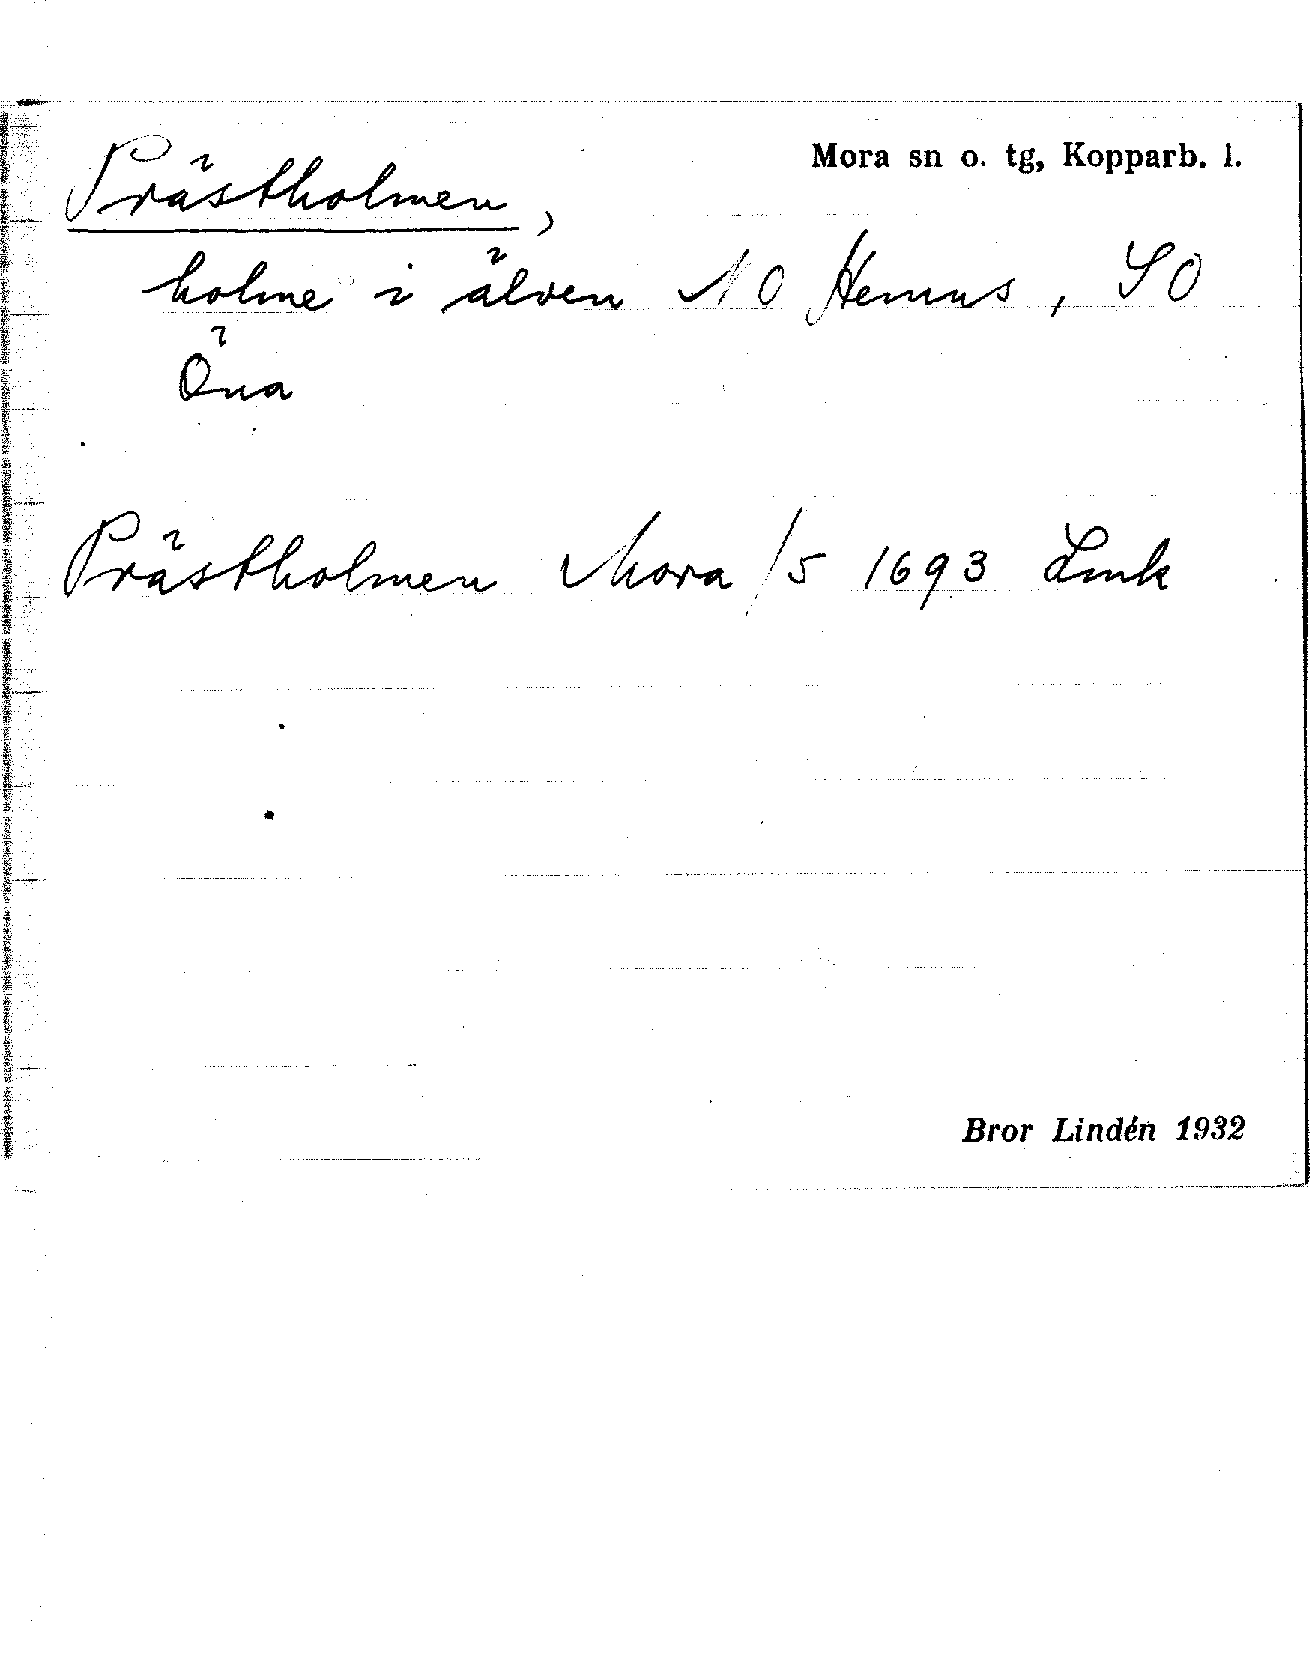 Mora sn o. tg, Kopparb. l.
Prästholmen,
holme i älven NO Hemus, SO
Öna
Prästholmen Mora /5 1693 Lmk
Bror Lindén 1932